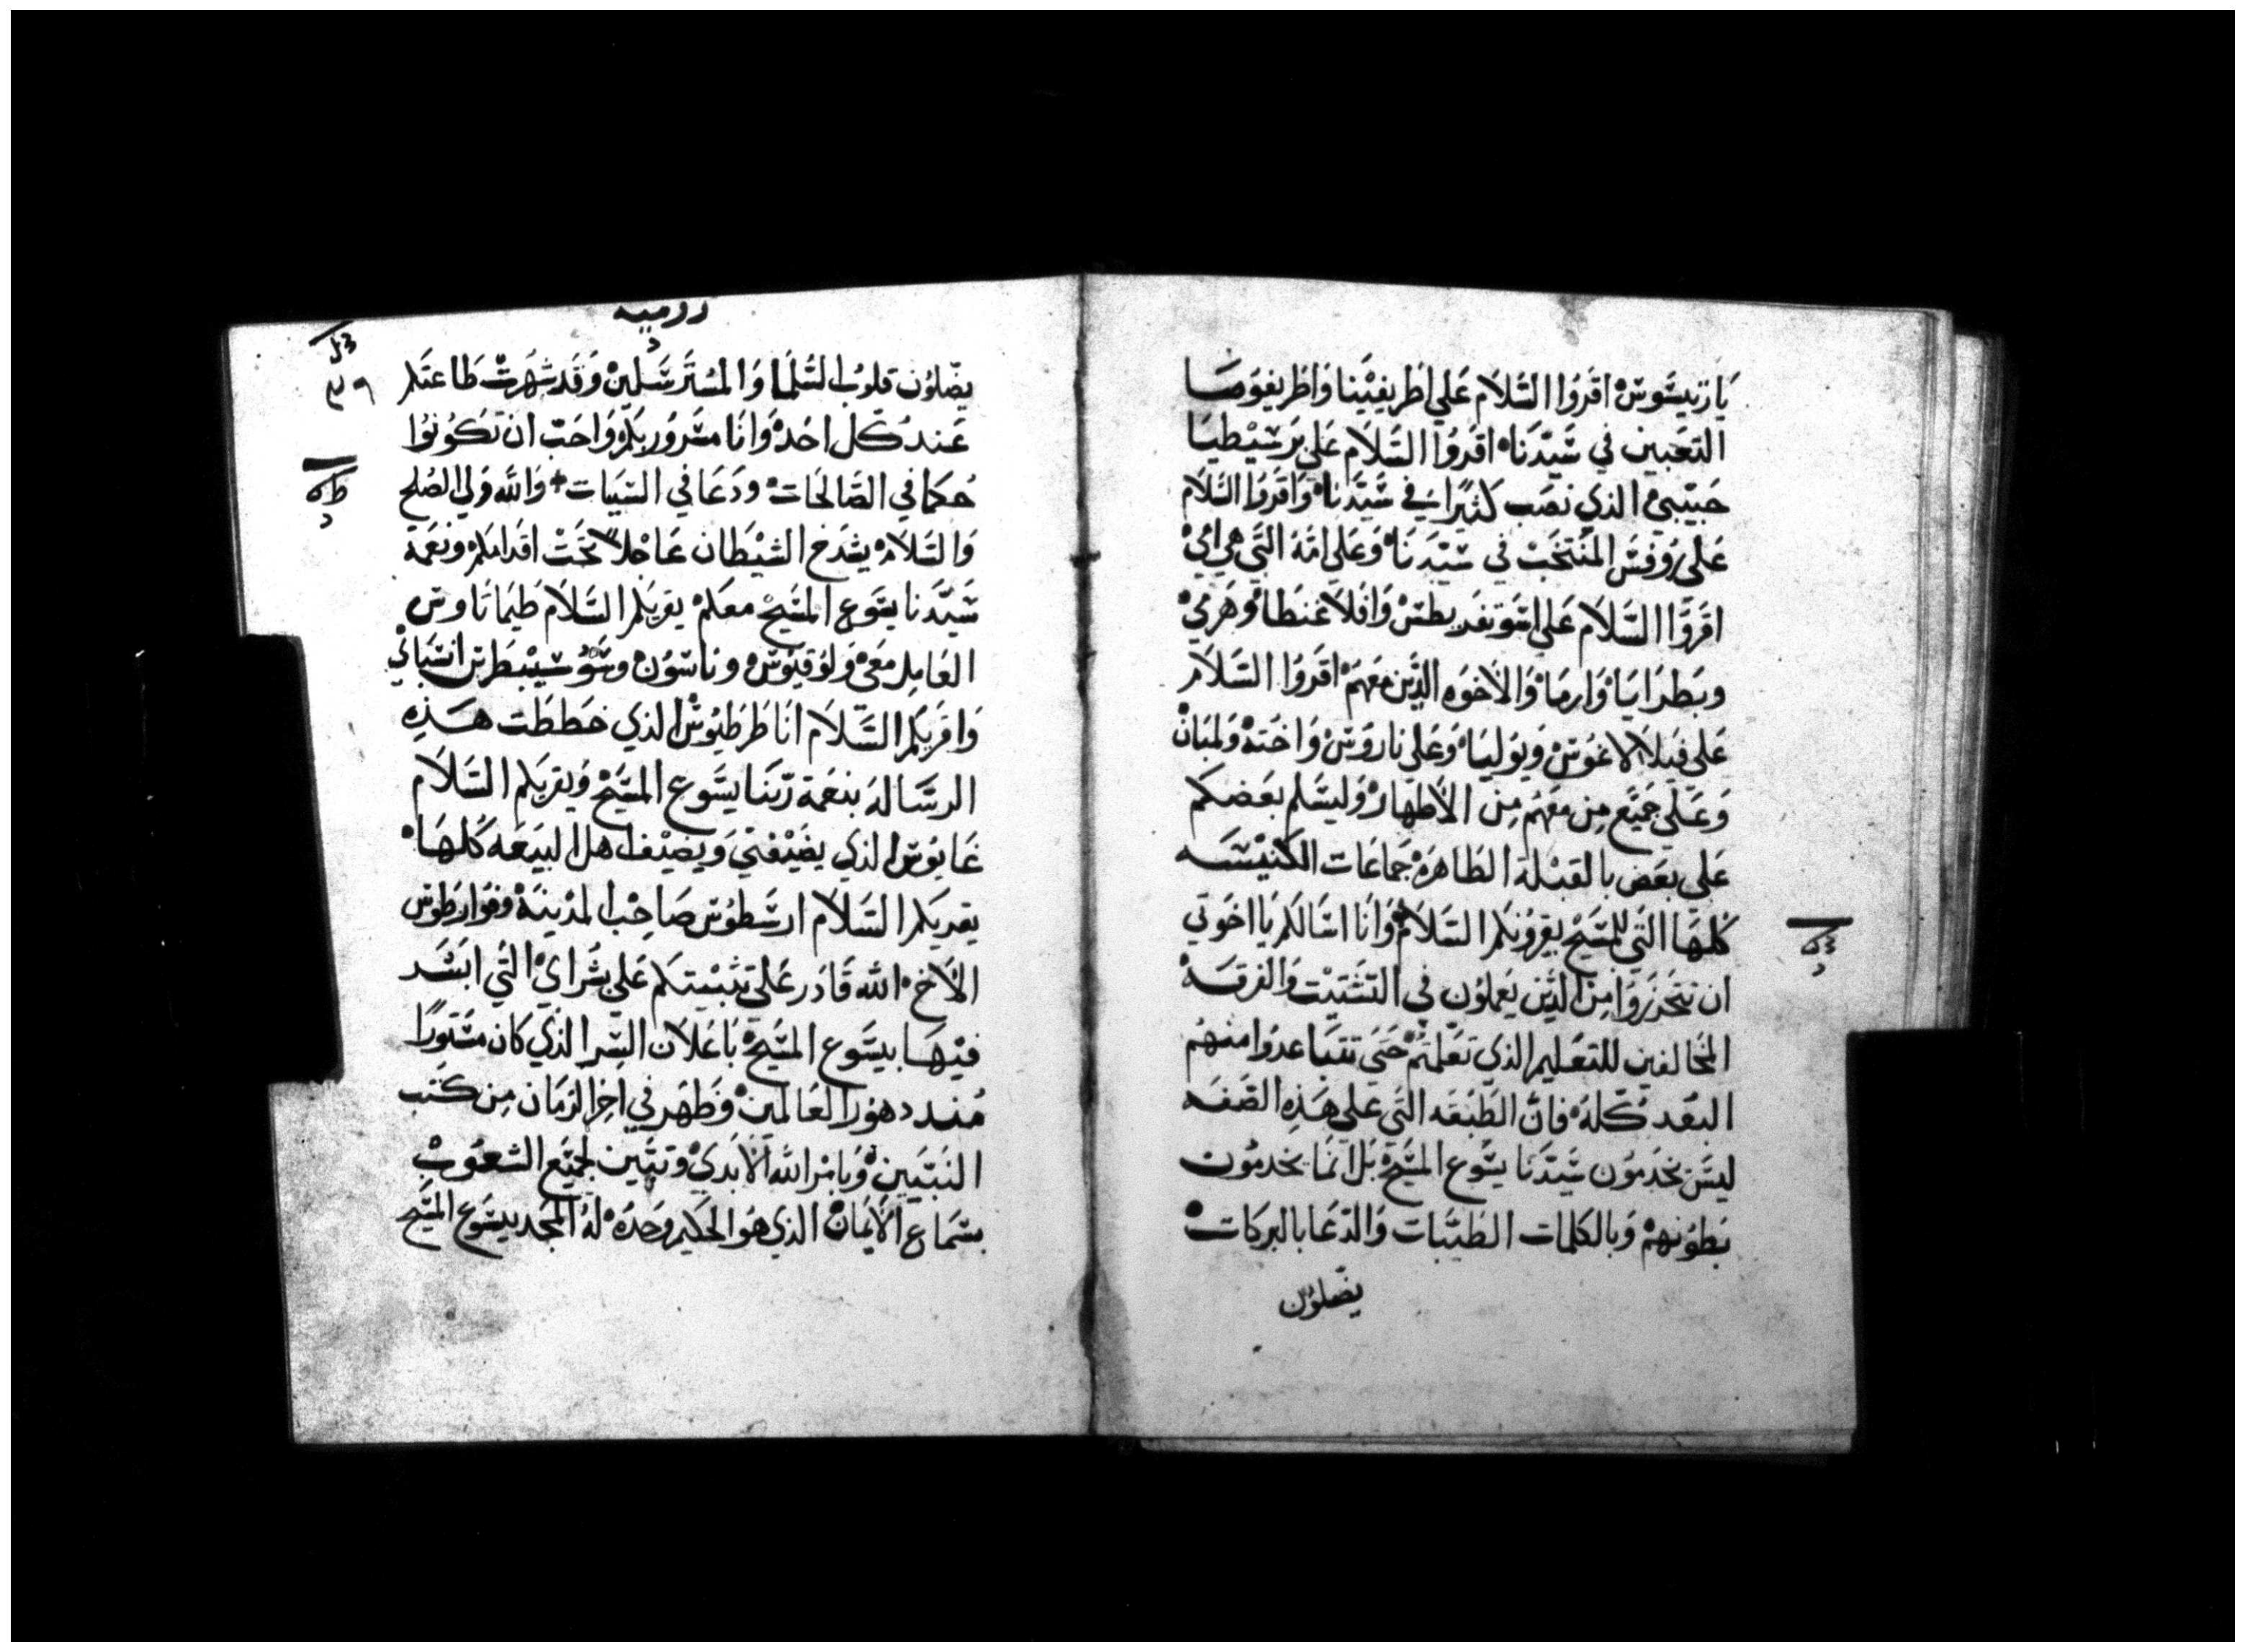 يَارَيسَّوسْ اقرَوُا السَّلاَم عَلي اطريفيْنا وَاطريفوُسَا
التعَبين في سَيّدَنَاه اقرَوُا السَّلاَم عَلي بَرسْيْطيَا
حَبيْبيْ الذي نصَب كثيْرًا في سَيّدَناْ وَاقرَوُا السَّلاَم
عَلي رُوفسْ المنُتخَبْ في سَيّدَنَاْ وَعَلي امّهُ التَّي هيَ امْيْ
اقرَوَّا السَّلاَم عَلي اسَّونقَريطسْ وَافلاَغنطَاْ وَهرَميْ
وبَطرَابَاْ وَارمَاْ وَالاخوَه الذَّين مَعَهمْ اقرَوُا السَّلاَم
عَلي فيَلاَلاغوُسْ وَيوُليَاْ وَعَلي ناروَسْ وَاختهْ وَلمبَانْ
وَعَلَي جَميَّع مِن مَعَهُم مِن الأطهارْ وَليسَّلم بَعَضكم
عَلي بَعَض بالقبْلة الطَاهرَهْ جَمَاعَات الكنيْسَّه
كلهَا التَّي للمسَّيْح يقروُنكم السَّلاَمْ وَانَا اسَالكم يَا اخوَتي
ان تتَحَرزَوُا مِن الذَّين يعَملوُن في التشَتيْت وَالفرقَهْ
المخَالفين للتعَليم الذي تعَلمتُمْ حَتَي تتبَاعدوُا منهُم
البعُد كلّهُ فانّ الطَبْقَه التَّي عَلي هَذِه الصَّفَه
ليسَّ يخدَموُن سَّيّدَنَا يسَّوُع المسَّيْحْ بَل انمَا يخدمُوُن
بَطوُنهمْ وَبالكلمات الطَيّبَات وَالدّعَا بالبرَكاتْ
يضّلوُن
روميه
٣٩
يضّلوُن قلوُب السُّلمَا وَالمسُترَسَّلينْ وَقد شهرَتْ طَاعتَكم
عَندَ كل احَدْ وَانَا مسَّروُر بَكمْ وَاحَبّ ان تكوُنوُا
حُكمَا في الصَّالحَاتْ ودَعَا في السَّيَات وَالله وَلي الصُلح
وَالسَّلاَمْ يشدَخ الشيْطَان عَاجْلاً تحَتْ اقدَامكمْ ونعَمَة
سَّيّدَنا يسَّوَع المسَّيْحْ معَكمْ يقريكم السَّلاَم طيمَاتَاوسْ
العَامِل مَعيْ وَلوُقيوُسْ وناسَوُنْ وسَّوُسْيبْطرسْ انسَّبَائيْ
وَاقريكم السَّلاَم انَا طَرطيوُسْ الذي خطَطَت هَذِه
الرسَّالهَ بنعَمَة رَبّنَا يسَّوع المسَّيْحْ وَيقريكم السَّلاَم
غَايوُسْ الذي يضَيْفنيْ وَيضَيْف اهل البيَعَه كلهَاْ
يقريكم السَّلاَم ارسَّطوُسْ صَاحِب المدْينَةْ وَقوُارطوسْ
الأخْ الله قَادَر عَلي تثبيْتكم عَلي بشرَايْ التي ابَشّر
فيْهَا بيسَّوع المسَّيْحْ بَاعَلاَن السِّر الذَي كان مسَتوُرًا
مُند دهوُر العَالمينْ وَظهر في اخِر الزمَان مِن كتب
النَبيَينْ وَبامَر الله الأبَديْ وَتبيّين لجَميَّع الشعَوُبْ
بسَّمَاع الأيمَانْ الذي هوُ الحَكيم وَحدَهْ لهُ المجَد بيسَّوع المسَّيْح